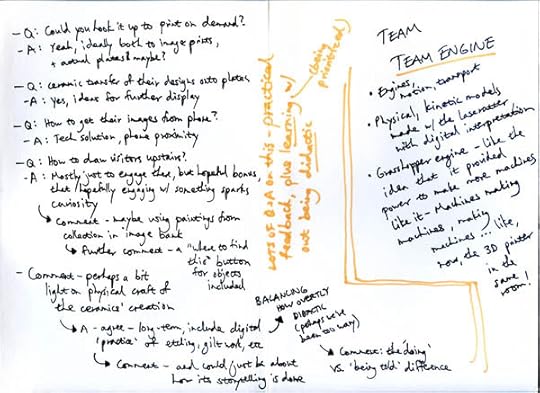 - Q: Could you hook it up to print on demand?
- A: Yeah, ideally both to image prints,
+ actual plates maybe?
- Q: ceramic transfer of their designs onto plates
- A: Yes, ideas for further display
- Q: How to get their images from phone?
- A: Tech solution, phone proximity
- Q: How to draw visitors upstairs?
- A: Mostly just to engage them, but hopeful bonus,
that hopefully engaging w/ something sparks
curiosity
Comment - maybe using paintings from
collection in image bank
Further comment - a "where to find
this" button
for objects
included
- Comment - perhaps a bit
light on physical craft of
the ceramics' creation
A - agree - long-term, include digital
'practice' of etching, gilt work, etc
Comment - and could just be about
how its storytelling is done
BALANCING
HOW OVERTLY
DIDACTIC
(perhaps we've
been too way)
Comment: the 'doing'
vs. 'being told' difference
LOTS of Q+A on this - practical
feedback, plus learning w/
out being didactic
(being
prioritized)
TEAM
TEAM ENGINE
• Engines,
motion, transport
• Physical, kinetic models
made w/ the lasercutter
with digital interpretation
• Grasshopper engine - like the
idea that it provided
power to make more machines
like it - Machines making
machines, making
machines... like,
now, the 3D printer
in the
same
room!